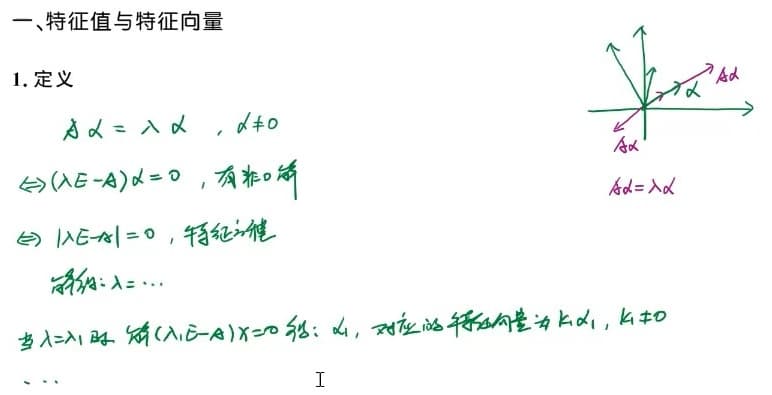 一、特征值与特征向量
1. 定义
Aα = λα , α≠0
⇔ (λE-A)α=0 , 有非0解
⇔ |λE-A|=0 , 特征方程
解得: λ=···
当λ=λ₁时 解(λ₁E-A)x=0得: α₁, 对应的特征向量为k₁α₁, k₁≠0
···
Aα
α
Aα
Aα=λα